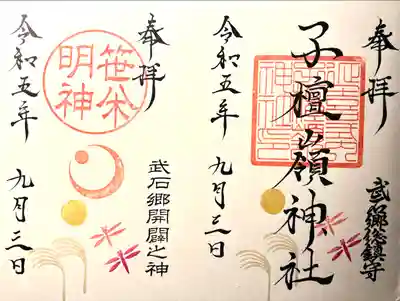 奉拝
子檀嶺神社
武石郷総鎮守
令和五年 九月三日
奉拝
笹焼
明神
武石郷開闢之神
令和五年 九月三日